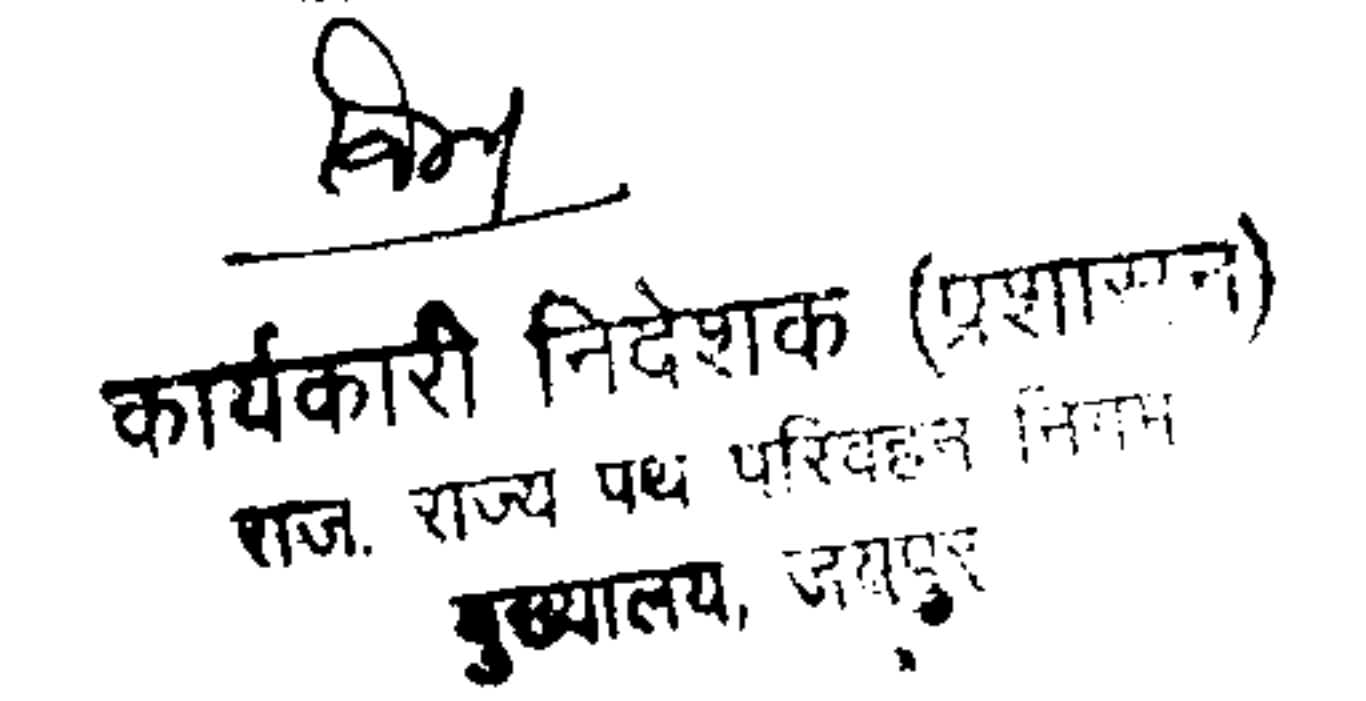 कार्यकारी निदेशक (प्रशासन)
राज. राज्य पथ परिवहन निगम
मुख्यालय, जयपुर